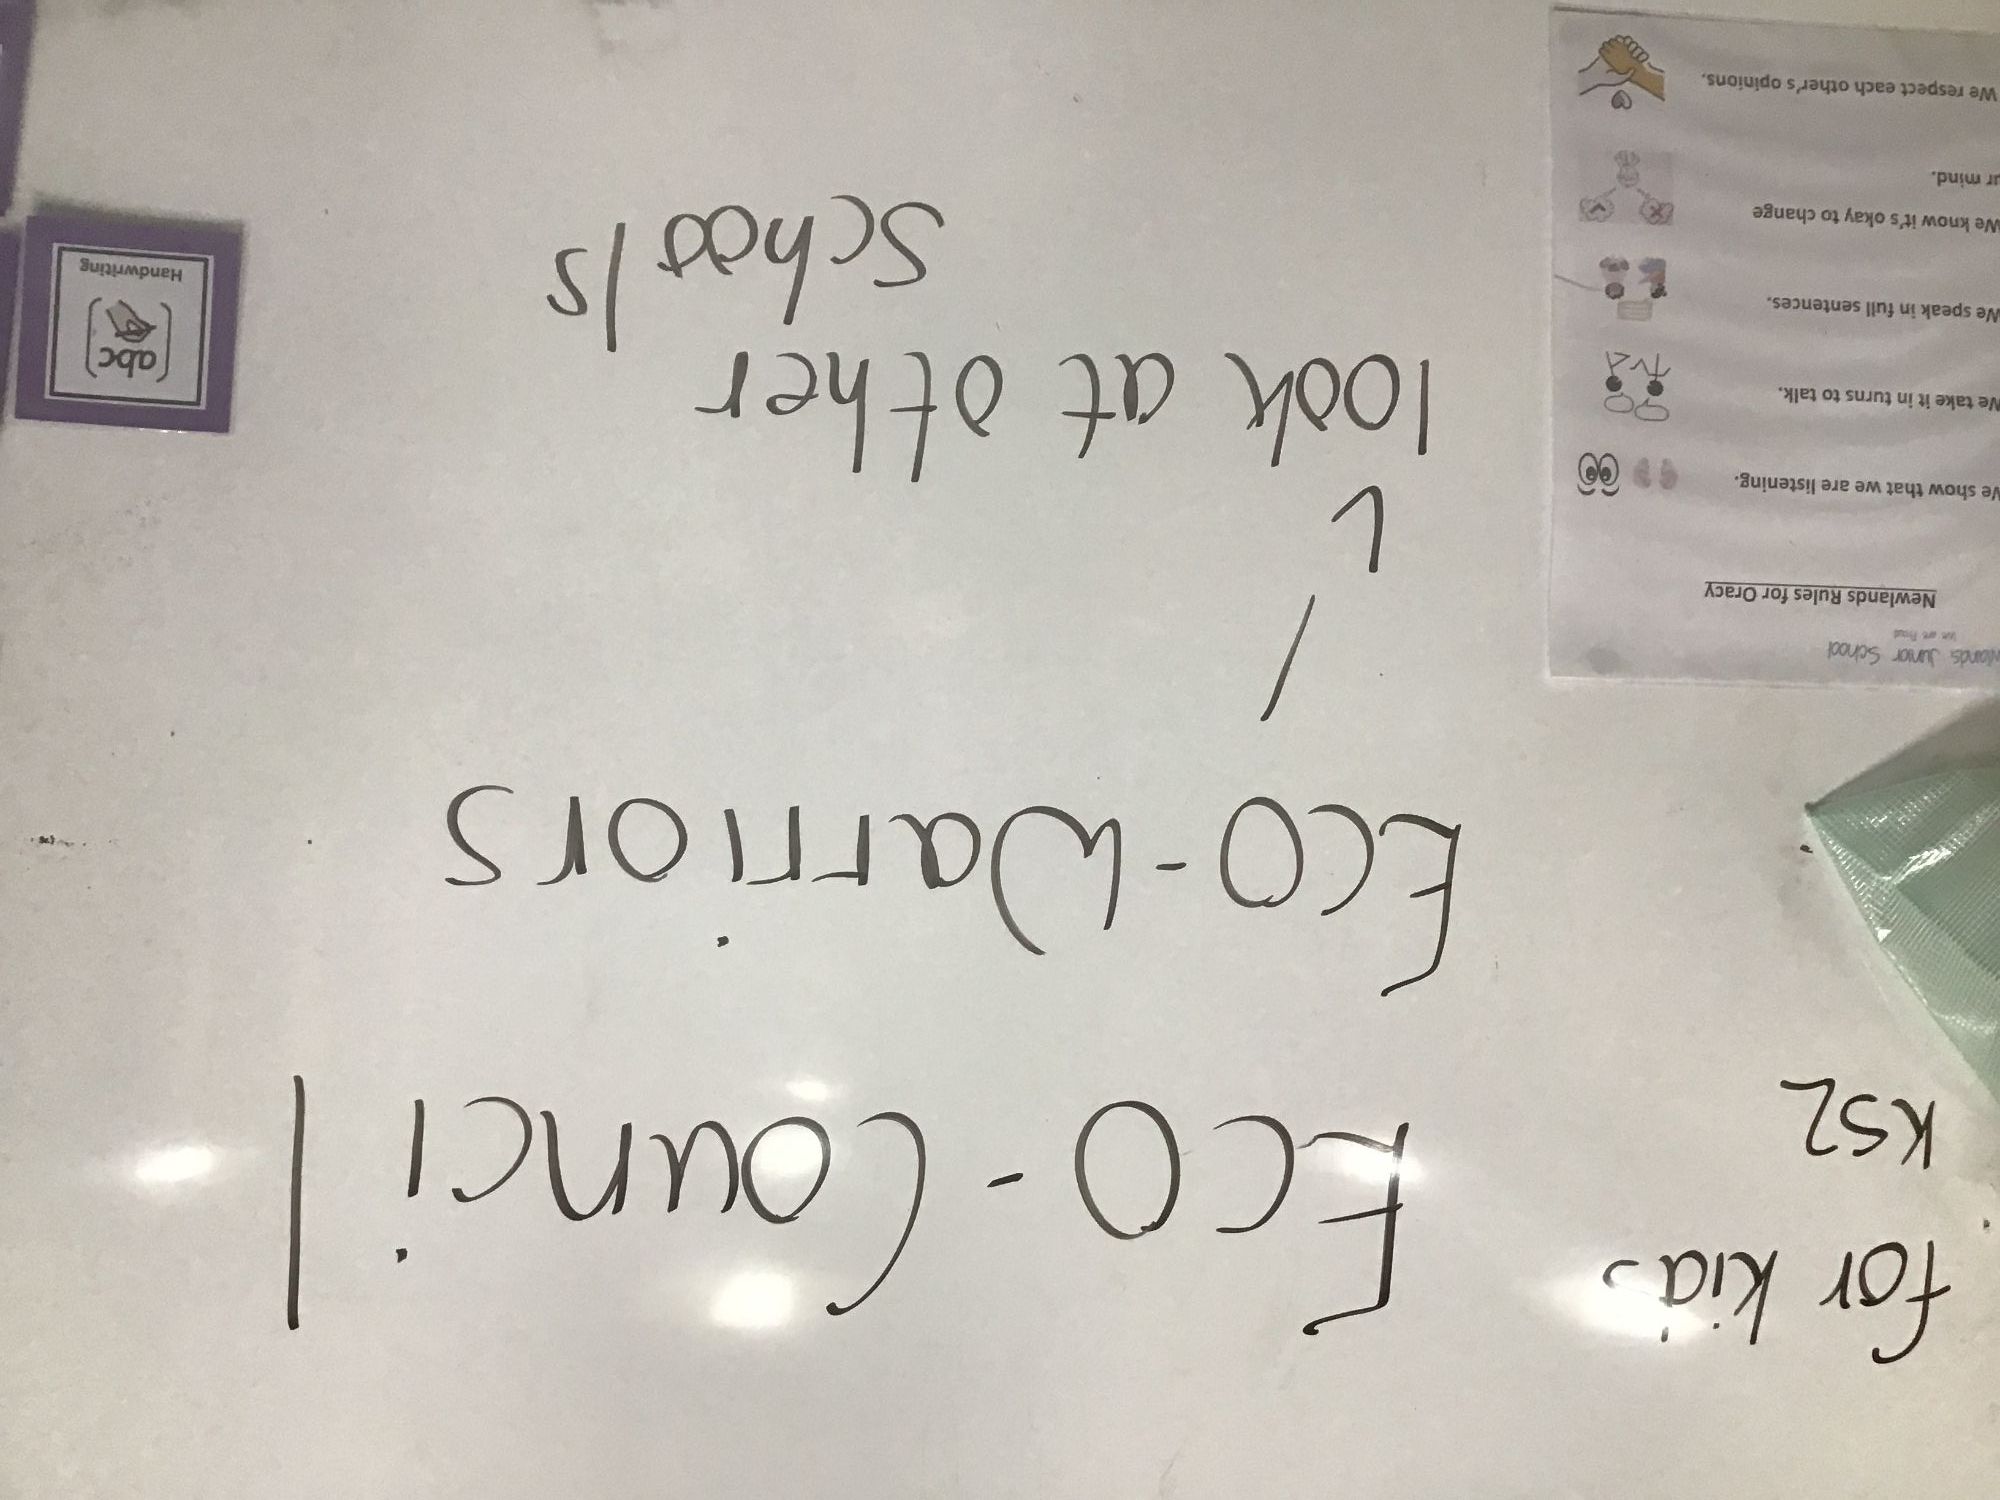 for kids
KS2
Eco-Council
Eco-Warriors
look at other
schools
Junior School
We are Proud
Newlands Rules for Oracy
We show that we are listening.
We take it in turns to talk.
We speak in full sentences.
We know it's okay to change
ur mind.
We respect each other's opinions.
abc
Handwriting